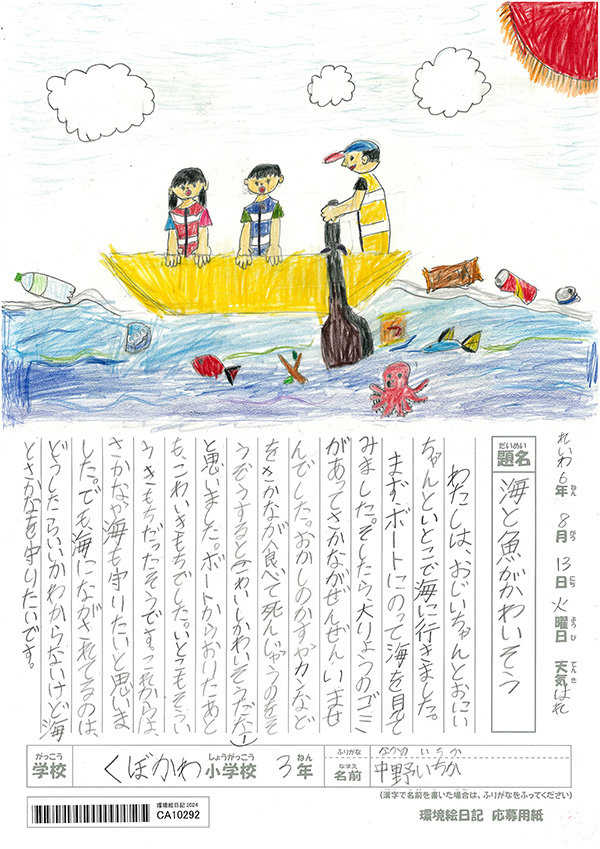 れいわ6年 8月 13日 火曜日 天気 はれ
ねん がつ にち ようび てんき
だいめい
題名
海と魚がかわいそう
わたしは、おじいちゃんとおにい
ちゃんといとこで海に行きました。
まず、ボートにのって海を見て
みました。そしたら、大りょうのゴミ
があってさかながぜんぜんいませ
んでした。おかしのかすやカンなど
をさかなが食べて死んじゃうのをそ
うぞうするとこわいしかわいそうだな
と思いました。ボートからおりたあと
も、こわいきもちでした。いとこもそうい
うきもちだったそうです。これからは、
さかなや海も守りたいと思いま
した。でも、海にながされてるのは、
どうしたらいいかわからないけど海
とさかなを守りたいです。
がっこう
学校
くぼかわ
しょうがっこう
小学校
3年
ねん
ふりがな
なかの いちか
なまえ
名前
中野いちか
(漢字で名前を書いた場合は、ふりがなをふってください)
環境絵日記2024
CA10292
環境絵日記 応募用紙